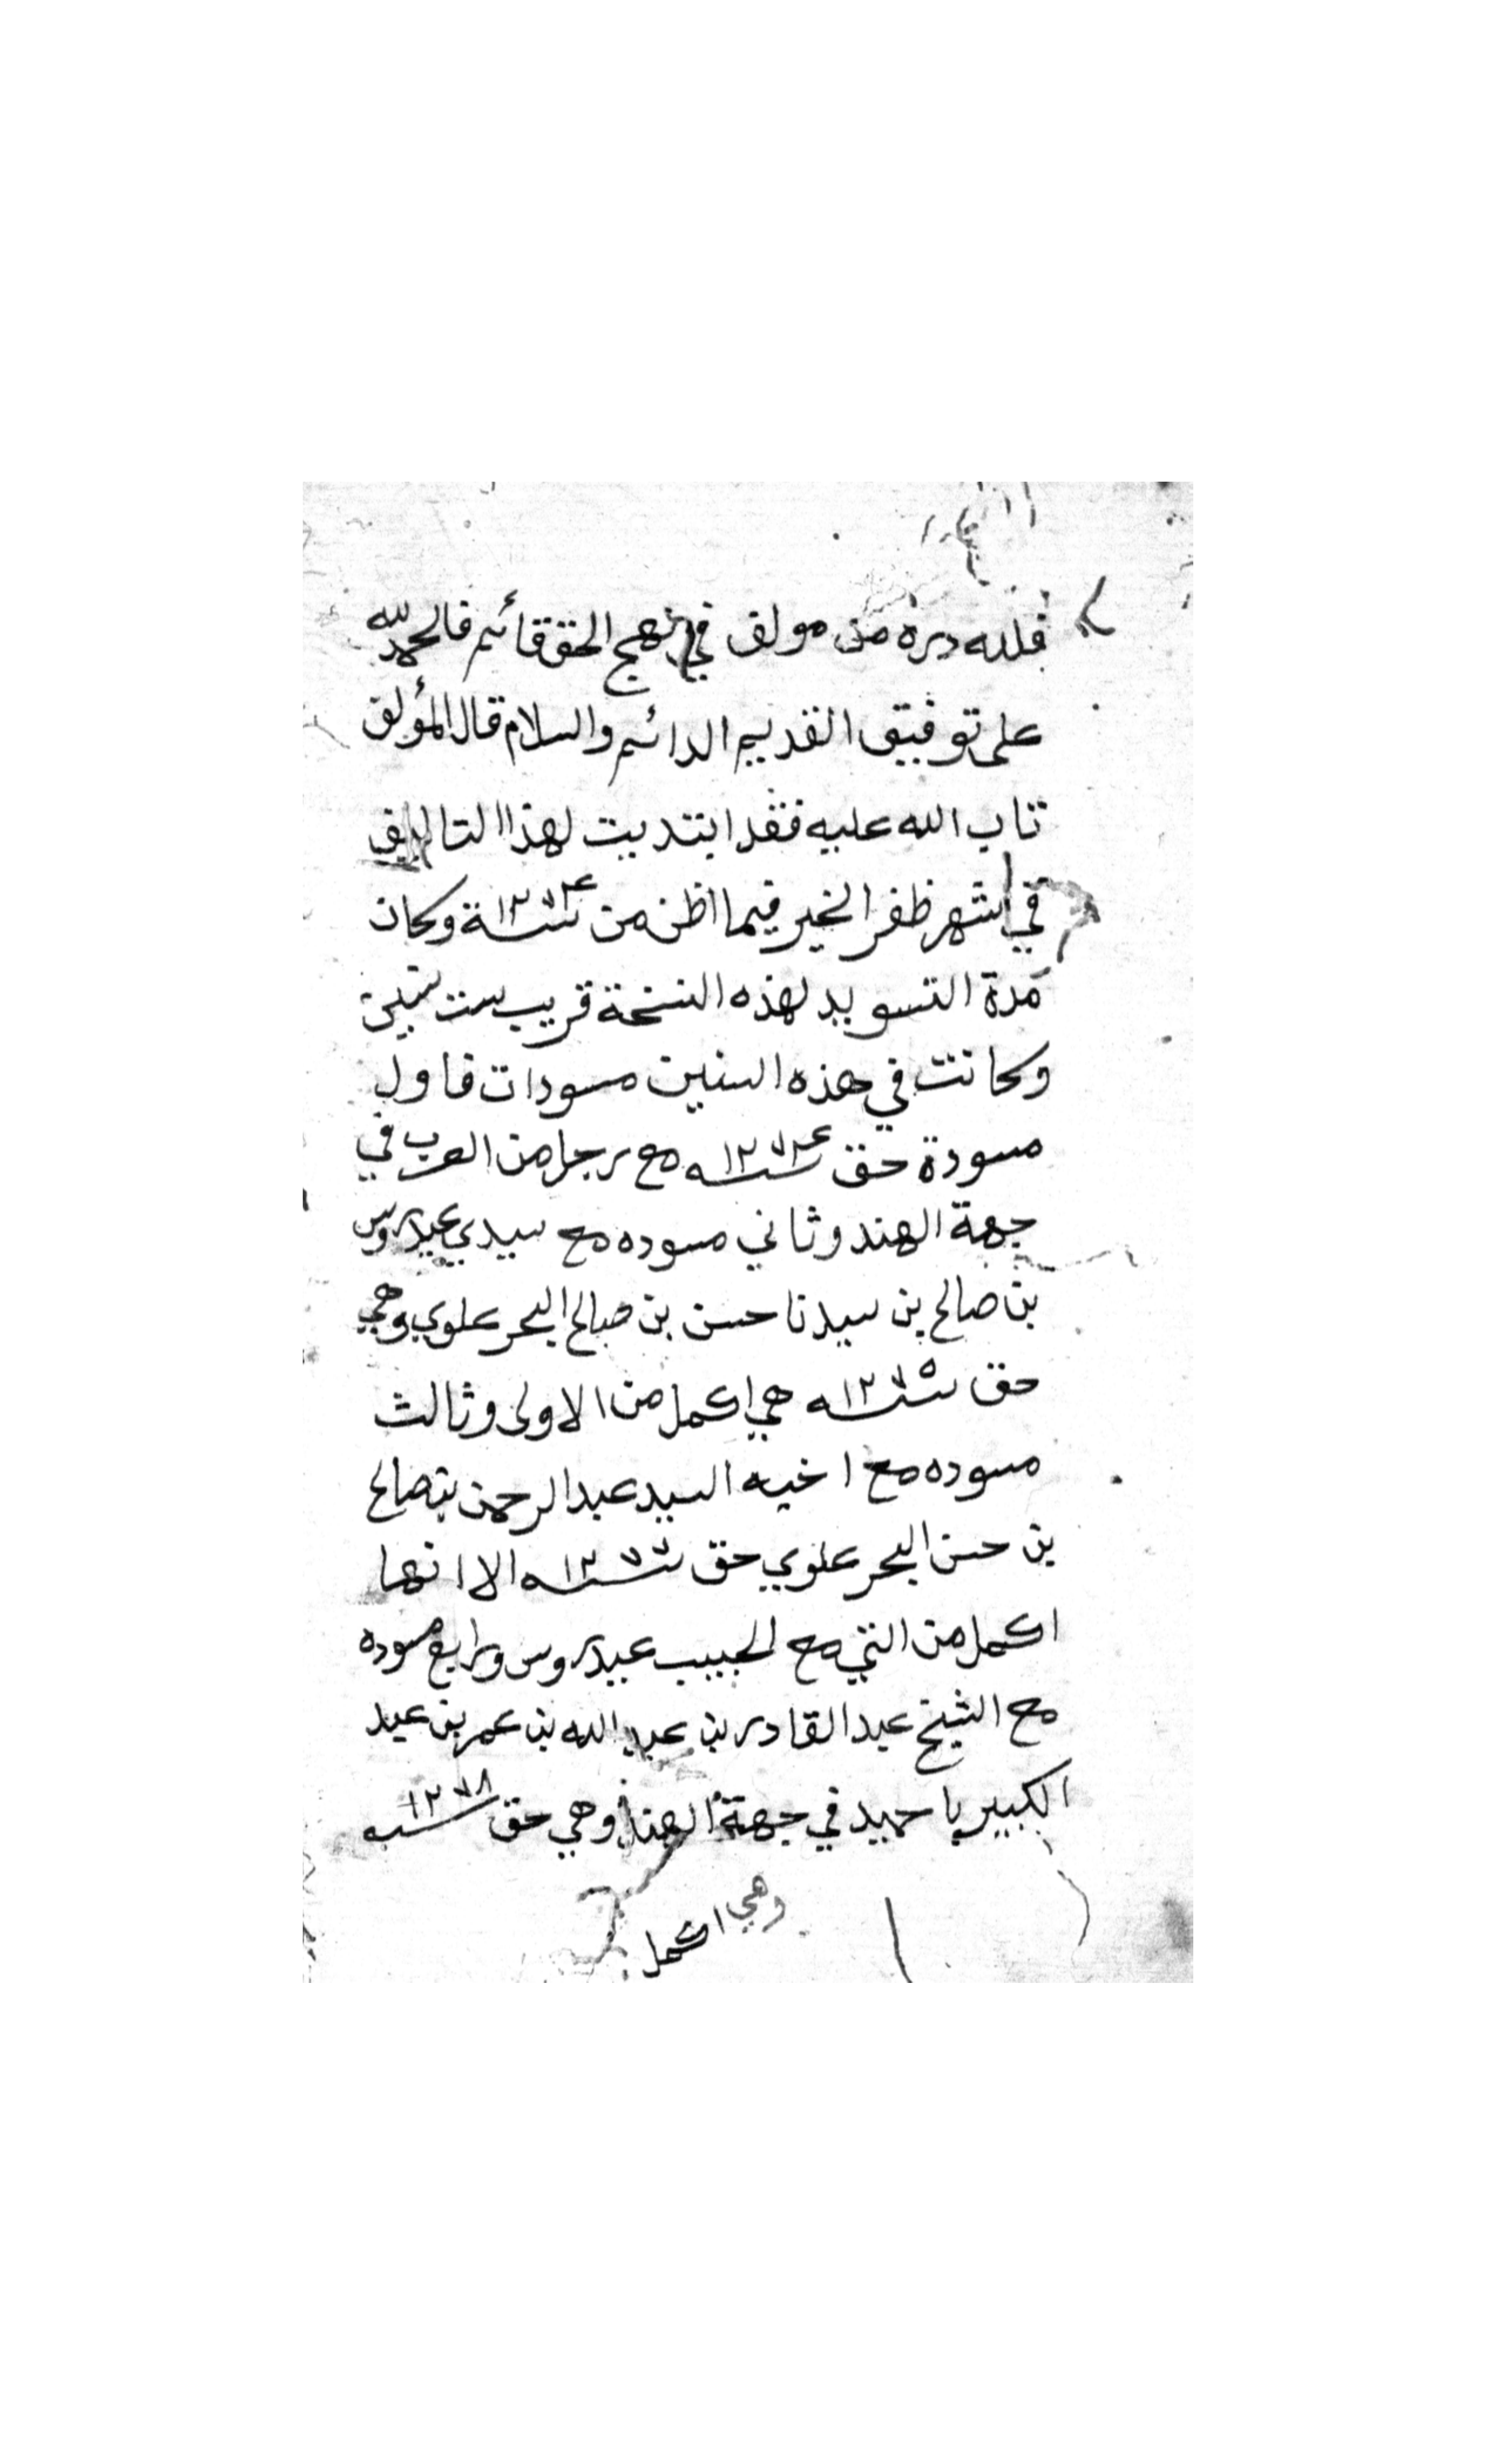 فلله دره من مولف في نهج الحق قائم فالحمد لله
على توفيق القديم الدائم والسلام قال المؤلف
تاب الله عليه فقد ابتديت لهذا التاليف
في شهر ظفر الخير فيما اظن من سنة ١٢٧٤ وكان
مدة التسويد لهذه النسخة قريب ست سنين
وكانت في هذه السنين مسودات فاول
مسودة حق سنه ١٢٧٤ مع رجل من العرب في
جهة الهند وثاني مسوده مع سيدي عيدروس
بن صالح بن سيدنا حسن بن صالح البحر علوي وهي
حق سنه ١٢٧٥ هي اكمل من الاولى وثالث
مسوده مع اخيه السيد عبد الرحمن بن صالح
بن حسن البحر علوي حق سنه ١٢٧٧ الا انها
اكمل من التي مع الحبيب عيدروس ورابع مسوده
مع الشيخ عبد القادر بن عبد الله بن عمر بن عبد
الكبير با حميد في جهة الهند وهي حق سنه ١٢٧٨
وهي اكمل